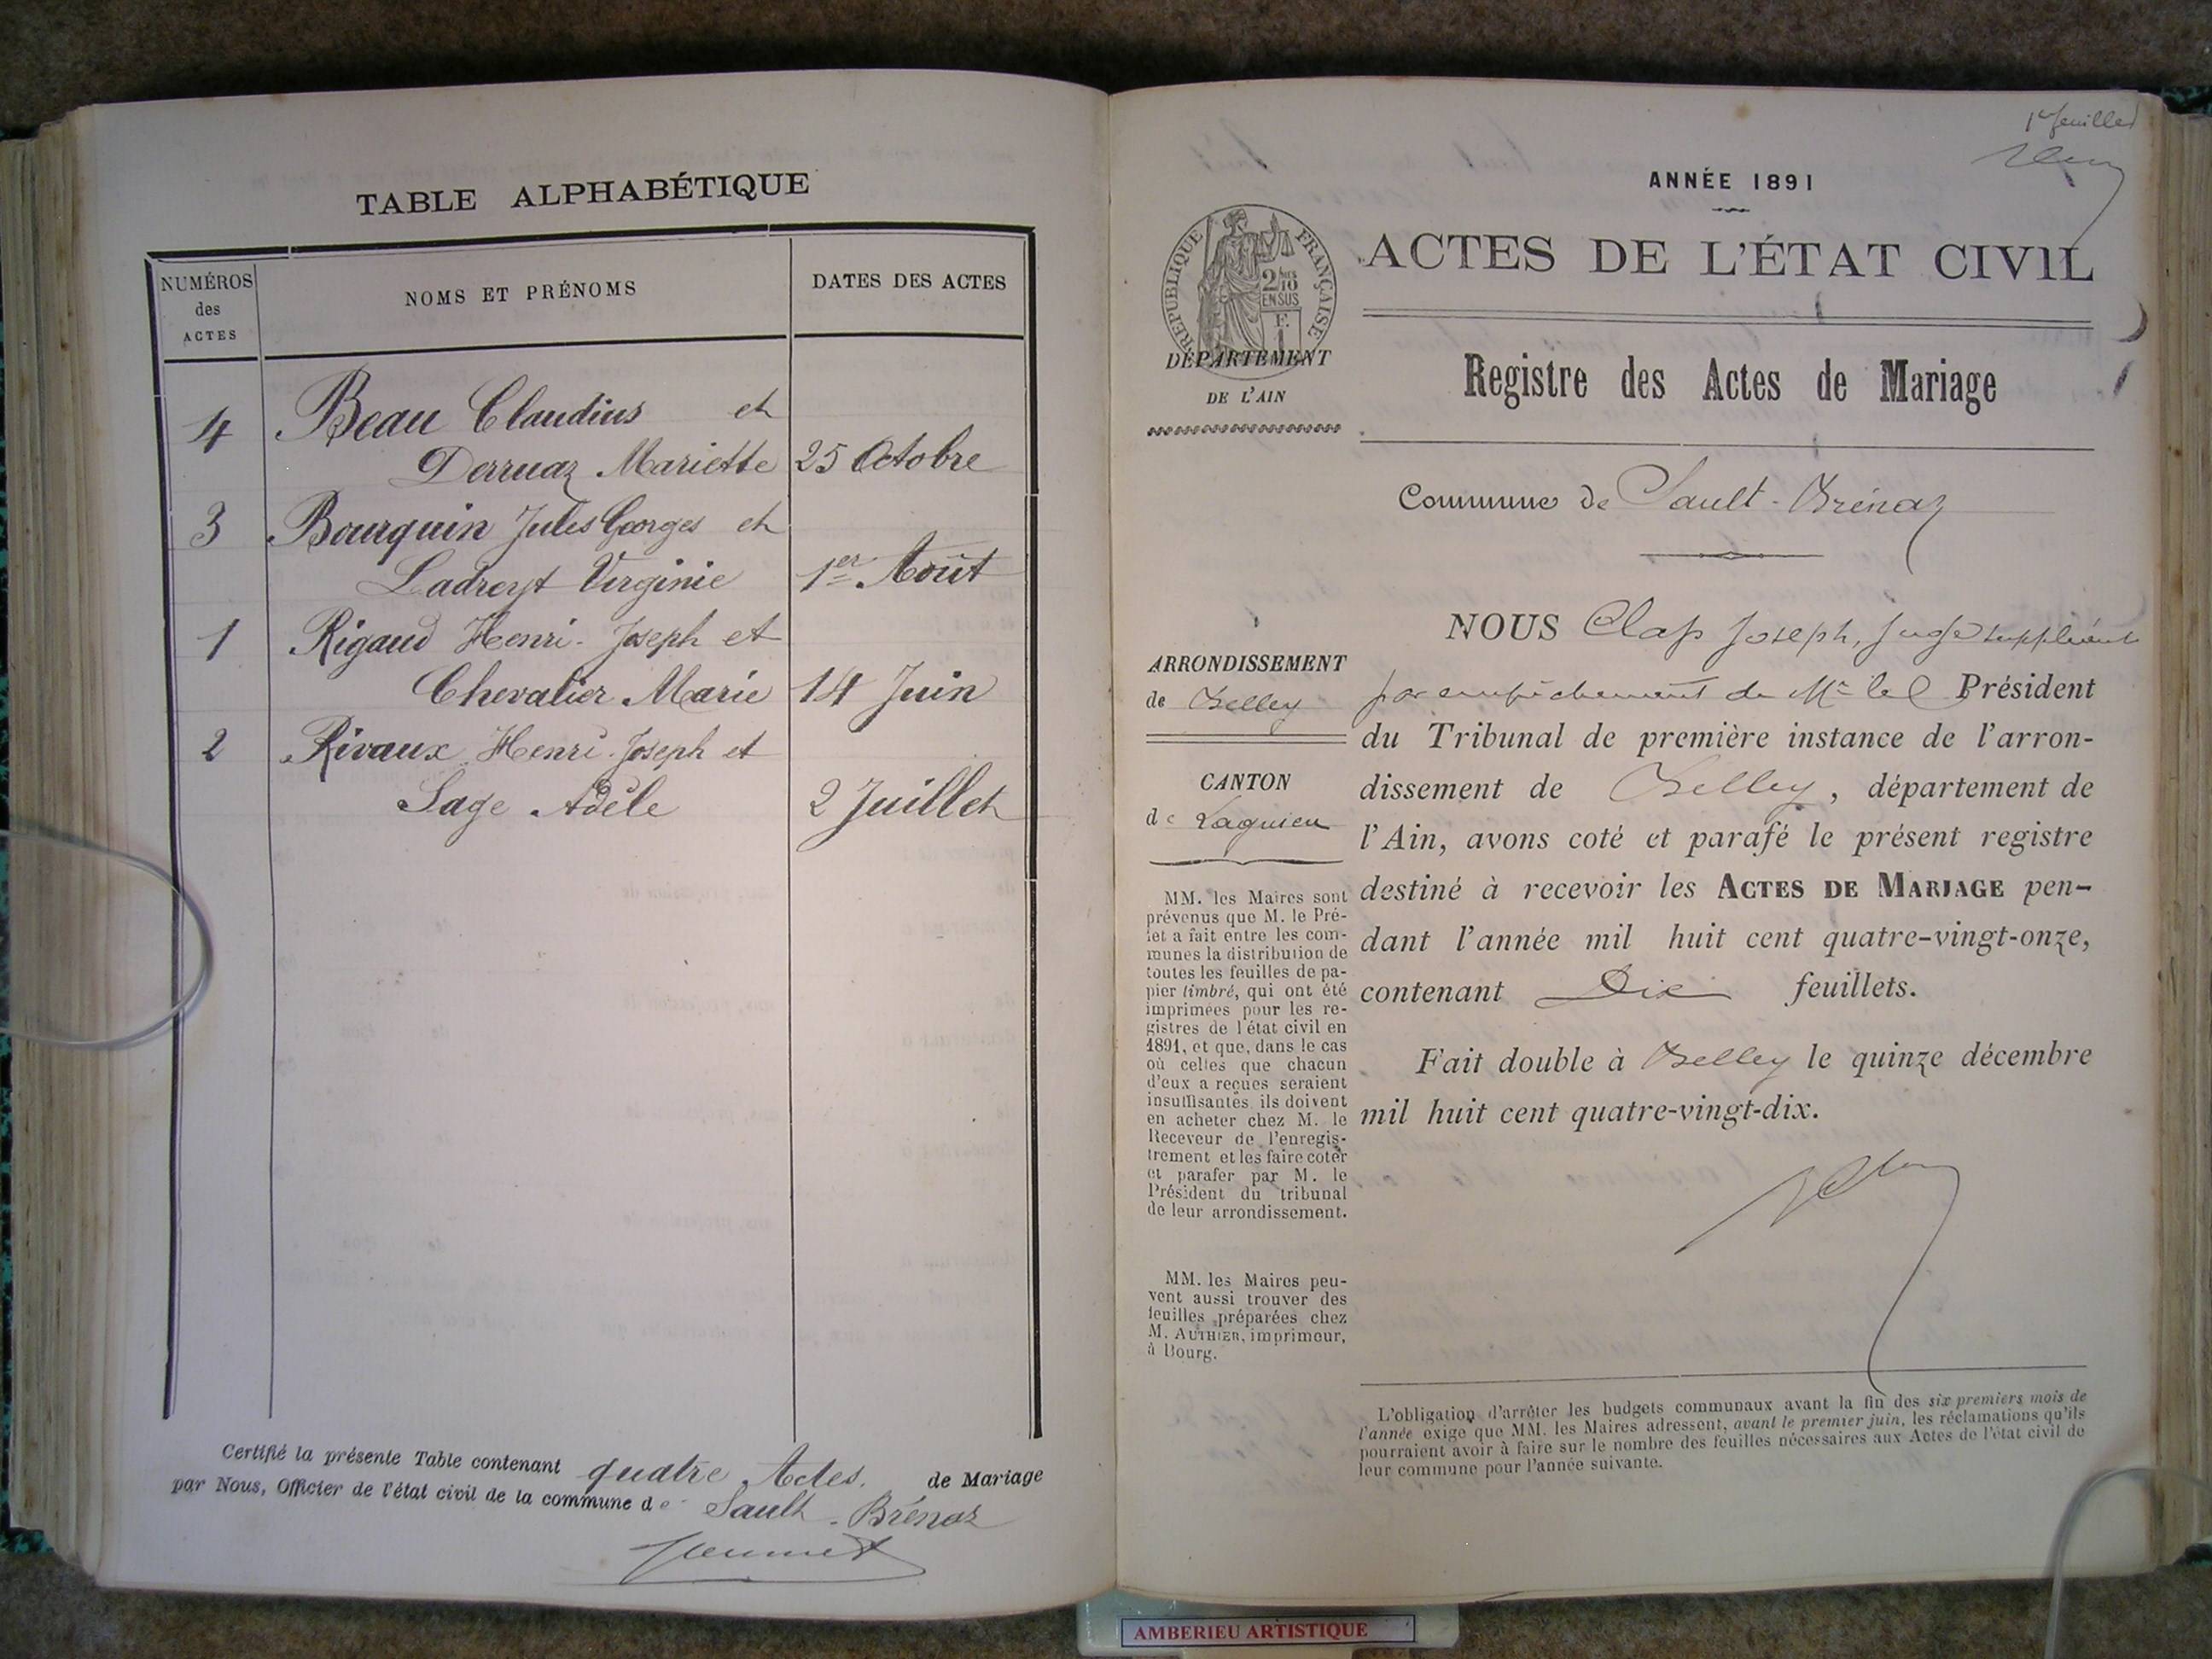 TABLE ALPHABÉTIQUE
NUMÉROS des ACTES
NOMS ET PRÉNOMS
DATES DES ACTES
4 Beau Claudius et
Derruaz Mariette 25 Octobre
3 Bourquin Jules Georges et
Ladreyt Virginie 1er Août
1 Rigaud Henri-Joseph et
Chevalier Marie 14 Juin
2 Rivaux Henri-Joseph et
Sage Adèle 2 Juillet
Certifié la présente Table contenant quatre Actes. de Mariage
par Nous, Officier de l'état civil de la commune de Sault-Brénaz
1er feuillet
ANNÉE 1891
ACTES DE L'ÉTAT CIVIL
RÉPUBLIQUE FRANÇAISE
2/10
EN SUS
F.
1
DÉPARTEMENT
DE L'AIN
Registre des Actes de Mariage
Commune de Sault-Brénaz
ARRONDISSEMENT
de Belley
CANTON
de Lagnieu
NOUS Clap Joseph, Juge suppléant
par empêchement de Mr le Président
du Tribunal de première instance de l'arron-
dissement de Belley, département de
l'Ain, avons coté et parafé le présent registre
destiné à recevoir les ACTES DE MARIAGE pen-
dant l'année mil huit cent quatre-vingt-onze,
contenant Dix feuillets.
Fait double à Belley le quinze décembre
mil huit cent quatre-vingt-dix.
MM. les Maires sont
prévenus que M. le Pré-
fet a fait entre les com-
munes la distribution de
toutes les feuilles de pa-
pier timbré, qui ont été
imprimées pour les re-
gistres de l'état civil en
1891, et que, dans le cas
où celles que chacun
d'eux a reçues seraient
insuffisantes, ils doivent
en acheter chez M. le
Receveur de l'enregis-
trement et les faire coter
et parafer par M. le
Président du tribunal
de leur arrondissement.
MM. les Maires peu-
vent aussi trouver des
feuilles préparées chez
M. AUTHIER, imprimeur,
à Bourg.
L'obligation d'arrêter les budgets communaux avant la fin des six premiers mois de
l'année exige que MM. les Maires adressent, avant le premier juin, les réclamations qu'ils
pourraient avoir à faire sur le nombre des feuilles nécessaires aux Actes de l'état civil de
leur commune pour l'année suivante.
AMBERIEU ARTISTIQUE